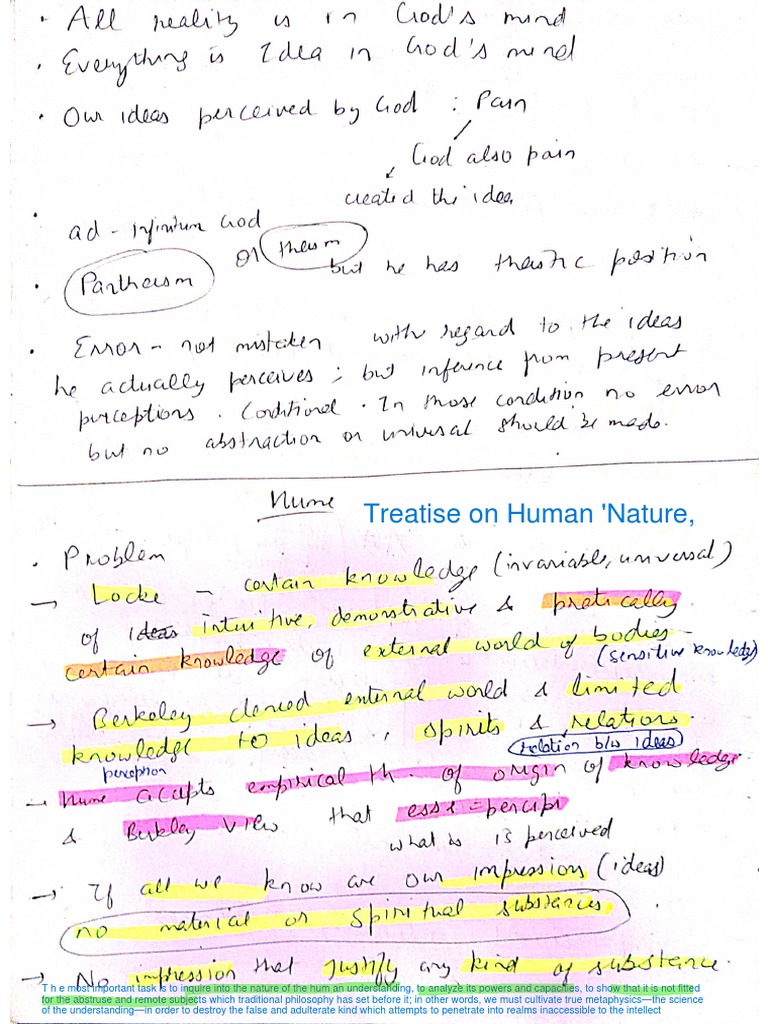 · All reality is in God's mind
· Everything is Idea in God's mind
· Our ideas perceived by God : Pain
God also pain
created the idea
· ad-infinitum God
· Pantheism or theism but he has theistic position
· Error - not mistaken with regard to the ideas
he actually perceives; but inference from present
perceptions. Conditional. In those condition no error
but no abstraction or universal should be made.
Hume Treatise on Human 'Nature,
· Problem
→ Locke - certain knowledge (invariable, universal)
of ideas intuitive, demonstrative & pratically
certain knowledge of external world of bodies -
(sensitive knowledge)
→ Berkeley denied external world & limited
knowledge to ideas, spirits & relations.
relation b/w ideas
perception
→ Hume accepts empirical th. of origin of knowledge
& Berkley view that esse = percipi
what is is perceived
→ If all we know are our impression (ideas)
no material or spiritual substances
→ No impression that justify any kind of substance.
The most important task is to inquire into the nature of the hum an understanding, to analyze its powers and capacities, to show that it is not fitted
for the abstruse and remote subjects which traditional philosophy has set before it; in other words, we must cultivate true metaphysics—the science
of the understanding—in order to destroy the false and adulterate kind which attempts to penetrate into realms inaccessible to the intellect